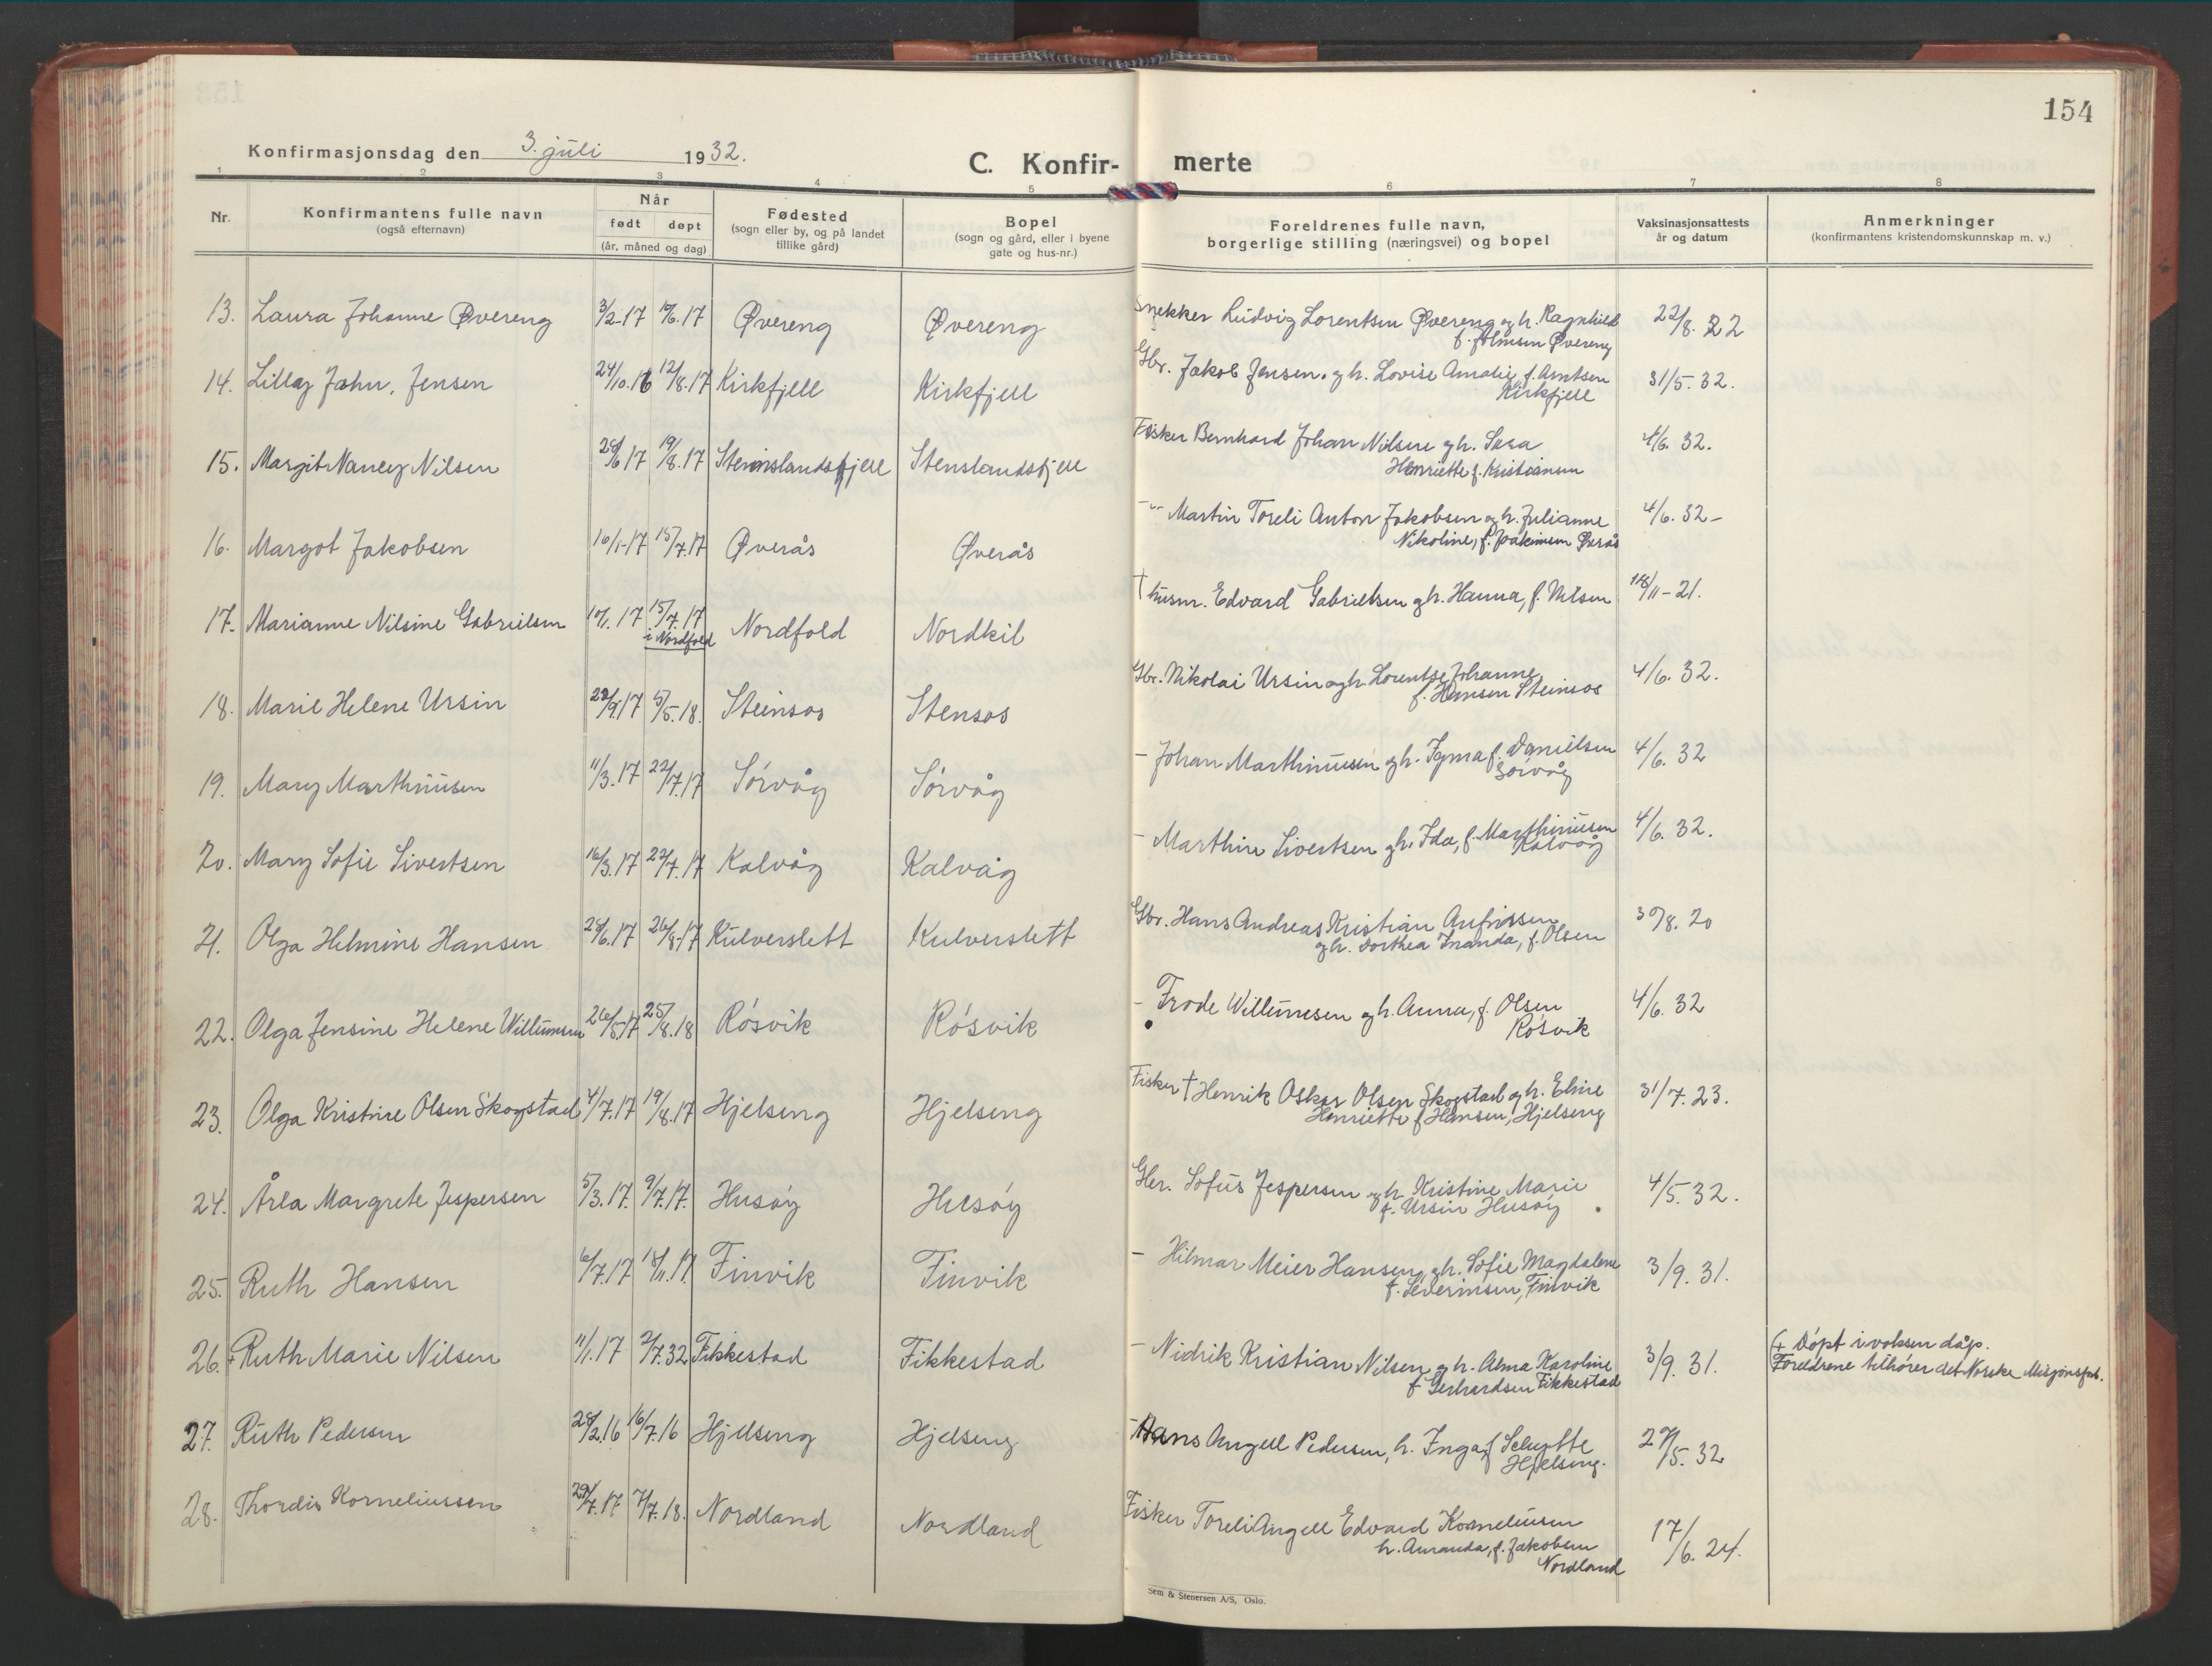 154
Konfirmasjonsdag den 3. juli 1932.
C. Konfir- merte
1 2 3 4 5 6 7 8
Nr.
Konfirmantens fulle navn
(også efternavn)
Når
født døpt
(år, måned og dag)
Fødested
(sogn eller by, og på landet
tillike gård)
Bopel
(sogn og gård, eller i byene
gate og hus-nr.)
Foreldrenes fulle navn,
borgerlige stilling (næringsvei) og bopel
Vaksinasjonsattests
år og datum
Anmerkninger
(konfirmantens kristendomskunnskap m. v.)
13. Laura Johanne Øvereng 3/2-17 10/6.17 Øvereng Øvereng Snekker Ludvig Lorentsen Øvereng og h. Ragnhild 22/8. 22
f. Øvereng
14. Lilly Jensen 24/10.16 12/8.17 Kirkfjell Kirkfjell Gbr. Jakob Jensen og h. Lovise Amalie f. Arntsen 31/5. 32.
Kirkfjell
15. Margit Nancy Nilsen 17 19/8.17 Stenslandsfjell Fisker Bernhard Johan Nilsen og h. Sara 4/6. 32.
Henriette f. Kristiansen
16. Margot Jakobsen 16/1-17 15/7.17 Øverås Øverås -"- Martin Toreli Anton Jakobsen og h. Julianne 4/6. 32-
Nikoline, f. Øverås
17. Marianne Nilsine Gabrielsen 10/1.17 15/7.17 Nordfold Nordkil † husm. Edvard Gabrielsen og h. Hanna, f. Nilsen 18/11-21.
i Nordfold
18. Marie Helene Ursin 17 5/5.18. Steinsos Stensos Gbr. Nikolai Ursin og h. Lorentse Johanne 4/6. 32.
f. Hansen Steinsos
19. Mary Marthinusen 11/3.17 22/7.17 Sørvåg Sørvåg - Johan Marthinusen og h. f. Danielsen 4/6. 32
Sørvåg
20. Mary Sofie Sivertsen 16/3.17 22/7.17 Kalvåg Kalvåg - Sivertsen og h. Ida, f. Marthinusen 4/6. 32.
Kalvåg
21. Olga Helmine Hansen 28/6.17 26/8.17 Kulverslett Kulverslett Gbr. Hans Andreas Kristian 30/8. 20
og h. Dorthea f. Olsen
22. Olga Jensine Helene Willumsen 26/5.17 25/8.18 Røsvik Røsvik - Frode Willumsen og h. Anna, f. Olsen 4/6. 32
Røsvik
23. Olga Kristine Olsen Skogstad 4/7.17 19/8.17 Hjelseng Hjelseng Fisker † Henrik Oskar Olsen Skogstad og h. Eline 31/7. 23.
Henriette f. Hansen, Hjelseng
24. Årla Margrete Jespersen 5/3.17. 9/7.17. Husøy Husøy Gbr. Sofus Jespersen og h. Kristine Marie 4/5. 32.
f. Ursin Husøy
25. Ruth Hansen 6/7.17 18/11.17 Finvik Finvik - Hilmar Meier Hansen, og h. Sofie Magdalene 3/9. 31.
f. Severinsen, Finvik
26. + Ruth Marie Nilsen 11/1.17 2/7.32 Fikkestad Fikkestad - Nidrik Kristian Nilsen og h. Alma Karoline 3/9. 31. + Døpt i voksen dåp.
f. Gerhardsen Fikkestad Foreldrene tilhører det Norske Misjonsfrb.
27. Ruth Pedersen 28/2.16 16/7.16 Hjelseng Hjelseng - Hans Angell Pedersen, h. Inga, f. Schytte /5. 32
Hjelseng.
28. Thordis Korneliussen 17 7/7.18. Nordland Nordland Fisker Toreli Angell Edvard Korneliusen 17/6. 24.
h. Amanda, f. Jakobsen
Nordland
Sem & Stenersen A/S, Oslo.